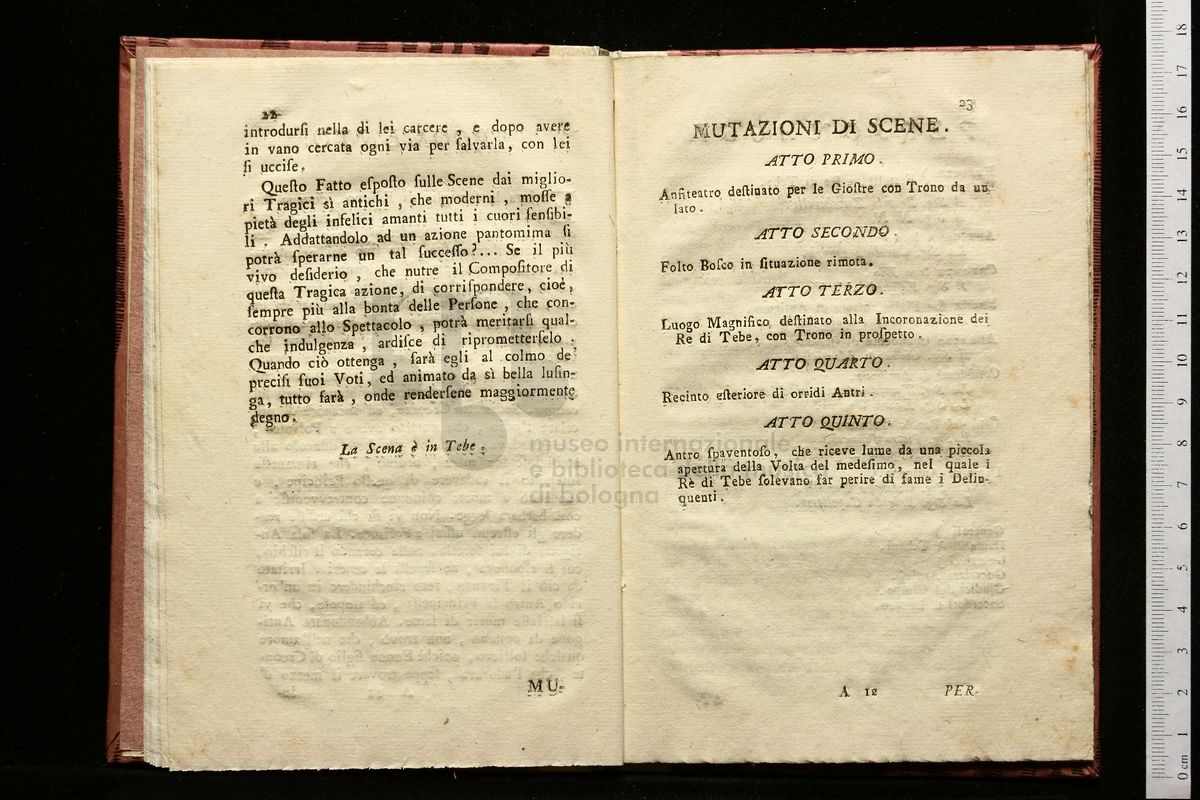 22
introdurſi nella di lei carcere , e dopo avere
in vano cercata ogni via per ſalvarla, con lei
ſi ucciſe.
Queſto Fatto eſpoſto ſulle Scene dai miglio-
ri Tragici sì antichi , che moderni , moſſe a
pietà degli infelici amanti tutti i cuori ſenſibi-
li . Addattandolo ad un azione pantomima ſi
potrà ſperarne un tal ſucceſſo?... Se il più
vivo deſiderio , che nutre il Compoſitore di
queſta Tragica azione, di corriſpondere, cioè,
ſempre più alla bonta delle Perſone , che con-
corrono allo Spettacolo , potrà meritarſi qual-
che indulgenza , ardiſce di riprometterſelo .
Quando ciò ottenga , ſarà egli al colmo de'
preciſi ſuoi Voti, ed animato da sì bella luſin-
ga, tutto farà , onde renderſene maggiormente
degno.
La Scena è in Tebe.
MU-
23
MUTAZIONI DI SCENE.
ATTO PRIMO.
Anfiteatro deſtinato per le Gioſtre con Trono da un
lato.
ATTO SECONDO.
Folto Boſco in ſituazione rimota.
ATTO TERZO.
Luogo Magnifico deſtinato alla Incoronazione dei
Re di Tebe, con Trono in proſpetto.
ATTO QUARTO.
Recinto eſteriore di orridi Antri.
ATTO QUINTO.
Antro ſpaventoſo, che riceve lume da una piccola
apertura della Volta del medeſimo, nel quale i
Rè di Tebe ſolevano far perire di fame i Delin-
quenti.
A 12
PER-
museo internazionale
e biblioteca
di bologna
0 cm 1 2 3 4 5 6 7 8 9 10 11 12 13 14 15 16 17 18